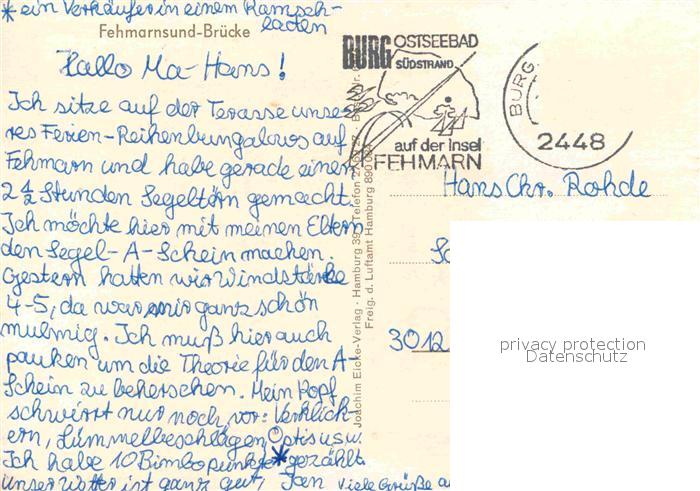 * ein Verkäufer in einem Ramsch-
laden
Fehmarnsund-Brücke
Hallo Ma-Hans!
Ich sitze auf der Terasse unse-
res Ferien-Reihenbungalows auf
Fehmarn und habe gerade einen
2 1/2 Stunden Segeltörn gemacht.
Ich möchte hier mit meinen Eltern
den Segel-A-Schein machen.
Gestern hatten wir Windstärke
4-5, da war mir ganz schön
mulmig. Ich muß hier auch
pauken um die Theorie für den A-
Schein zu beherschen. Mein Kopf
schwirrt nur noch vor: Verklick-
ern, Lümmelbeschlägen, Optis usw.
Ich habe 10 Bimbopunkte* gezählt.
unser Wetter ist ganz gut, Jan Viele Grüße
Joachim Eicke-Verlag · Hamburg 39 · Telefon
Freig. d. Luftamt Hamburg
BURG OSTSEEBAD
SÜDSTRAND
auf der Insel
FEHMARN
BURG
2448
Hans Chr. Rohde
3012
privacy protection
Datenschutz